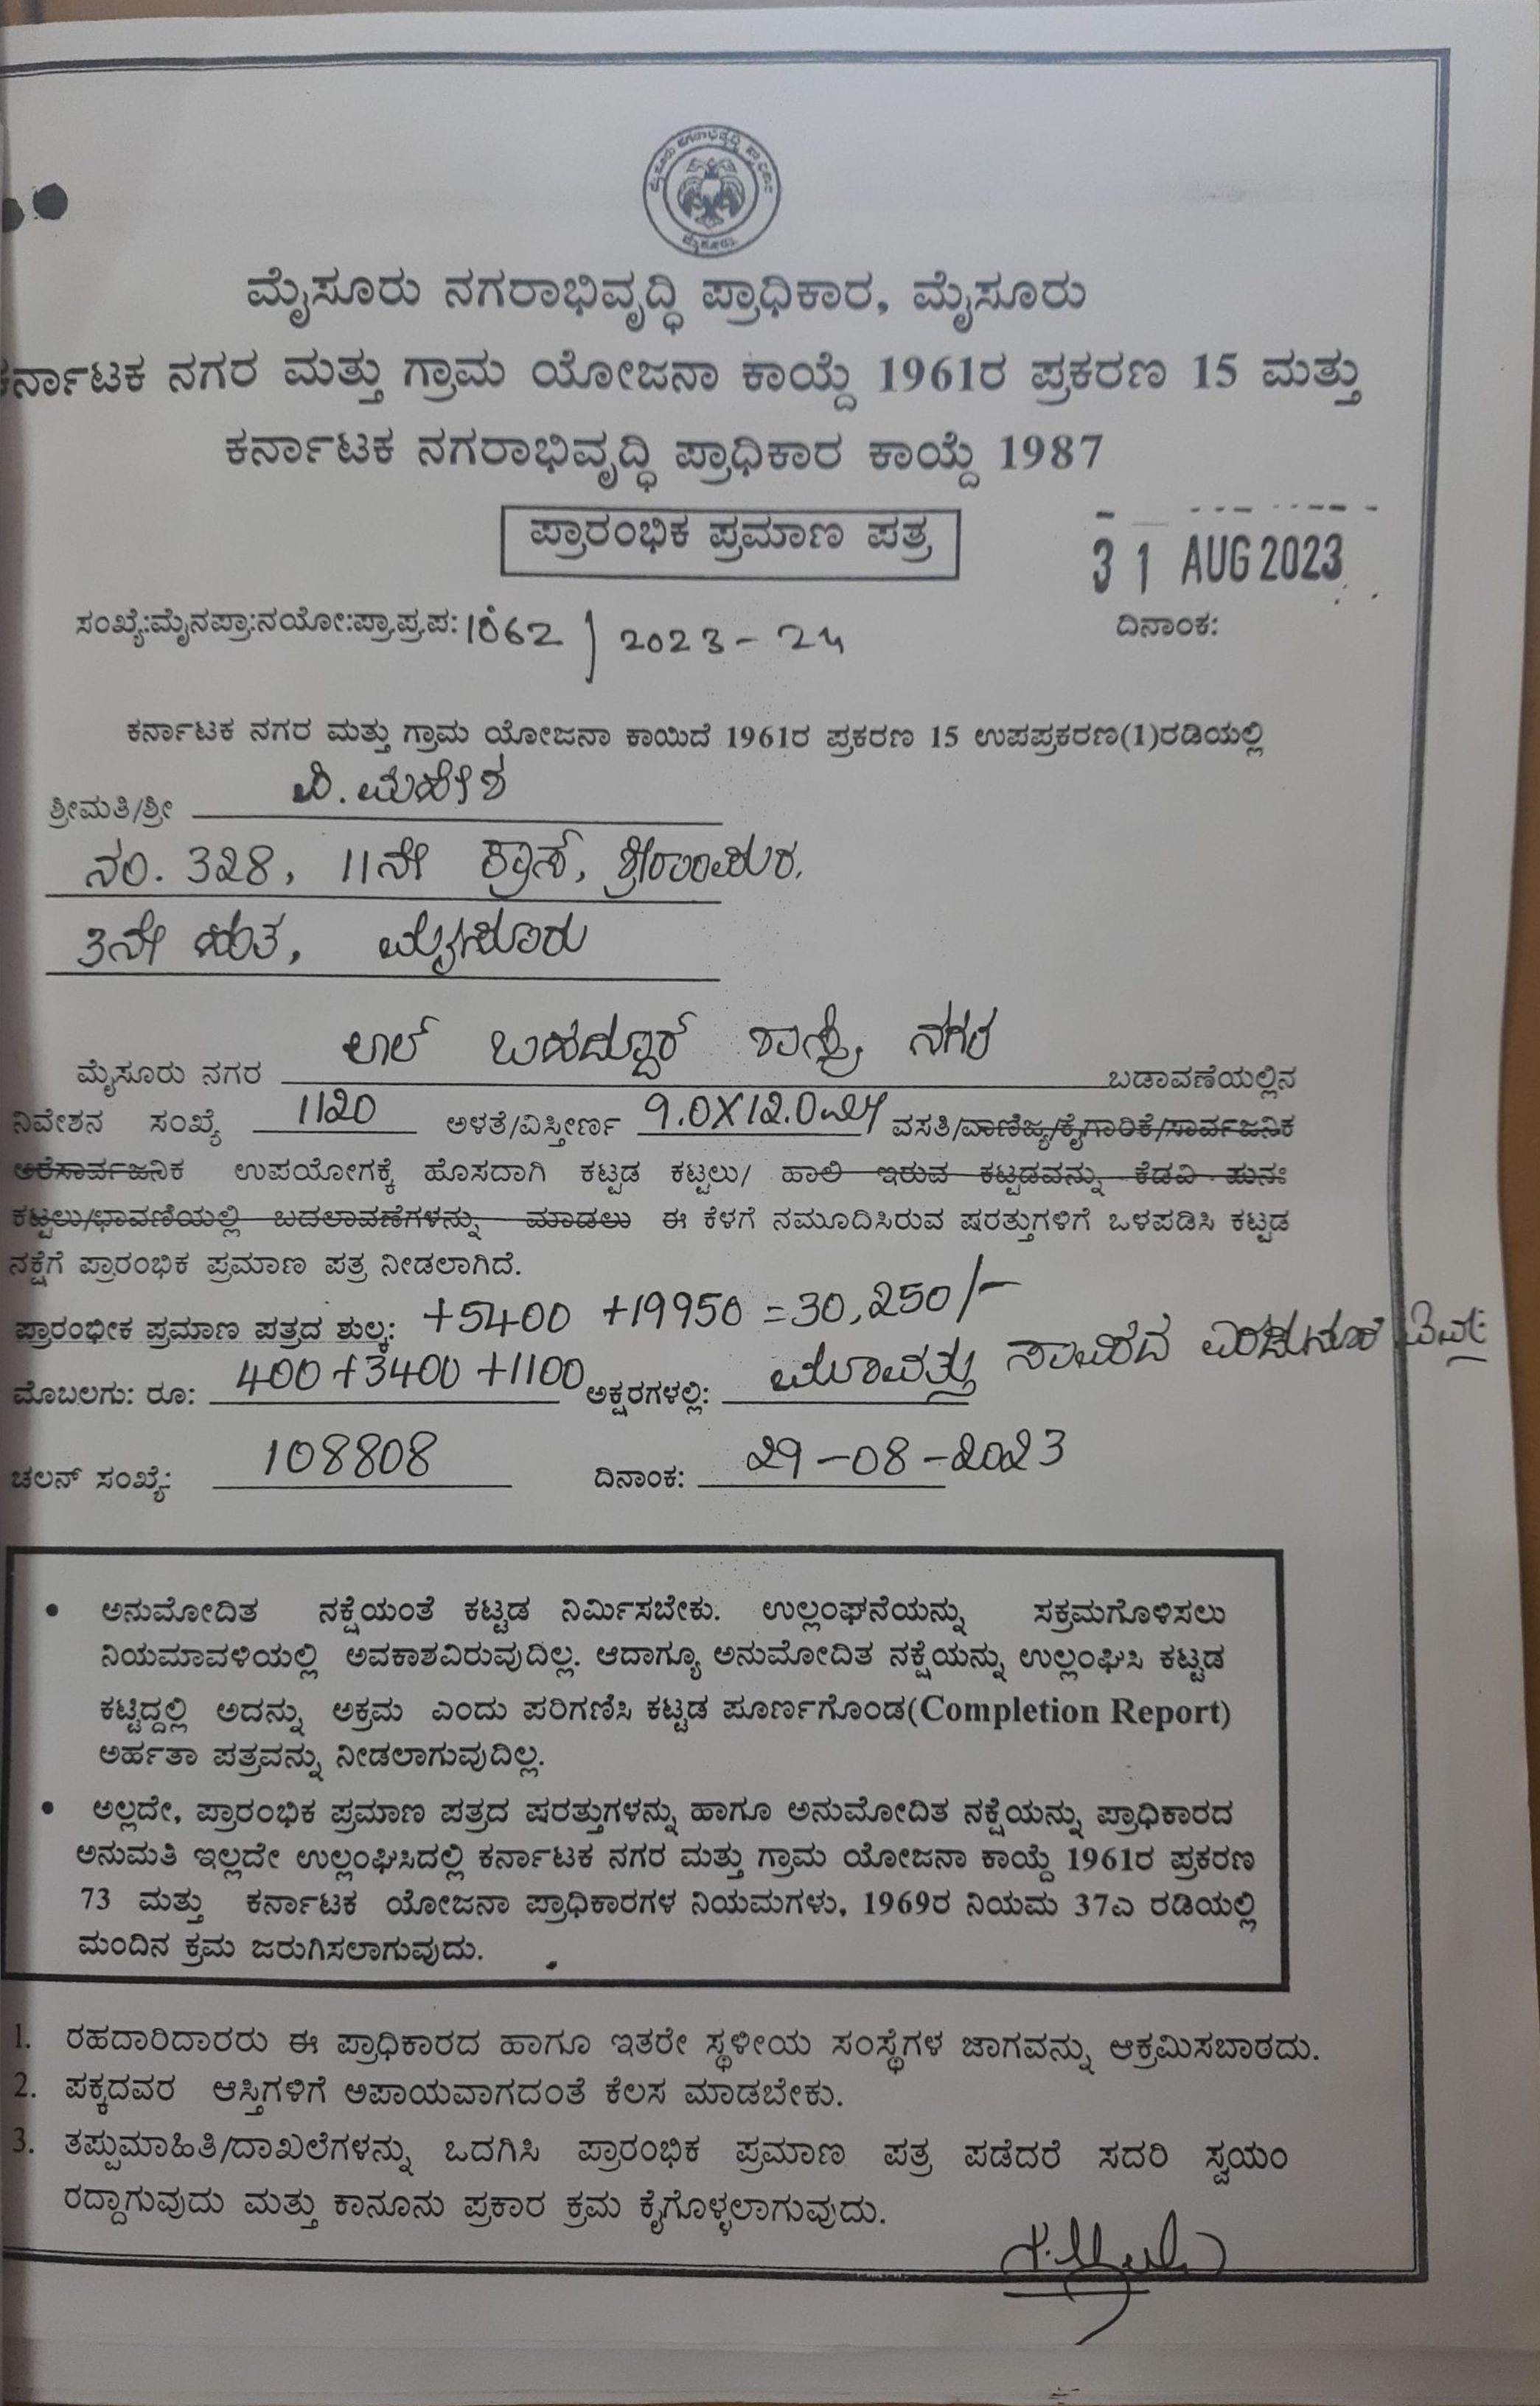 ಮೈಸೂರು ನಗರಾಭಿವೃದ್ಧಿ ಪ್ರಾಧಿಕಾರ
ಮೈಸೂರು
ಮೈಸೂರು ನಗರಾಭಿವೃದ್ಧಿ ಪ್ರಾಧಿಕಾರ, ಮೈಸೂರು
ಕರ್ನಾಟಕ ನಗರ ಮತ್ತು ಗ್ರಾಮ ಯೋಜನಾ ಕಾಯ್ದೆ 1961ರ ಪ್ರಕರಣ 15 ಮತ್ತು
ಕರ್ನಾಟಕ ನಗರಾಭಿವೃದ್ಧಿ ಪ್ರಾಧಿಕಾರ ಕಾಯ್ದೆ 1987
ಪ್ರಾರಂಭಿಕ ಪ್ರಮಾಣ ಪತ್ರ
31 AUG 2023
ಸಂಖ್ಯೆ:ಮೈನಪ್ರಾ:ನಯೋ:ಪ್ರಾ.ಪ್ರ.ಪ: 1062 / 2023-24 ದಿನಾಂಕ:
ಕರ್ನಾಟಕ ನಗರ ಮತ್ತು ಗ್ರಾಮ ಯೋಜನಾ ಕಾಯಿದೆ 1961ರ ಪ್ರಕರಣ 15 ಉಪಪ್ರಕರಣ(1)ರಡಿಯಲ್ಲಿ
ಶ್ರೀಮತಿ/ಶ್ರೀ ವಿ. ಮಹೇಶ
ನಂ. 328, 11ನೇ ಕ್ರಾಸ್, ಶ್ರೀರಾಂಪುರ,
3ನೇ ಹಂತ, ಮೈಸೂರು
ಮೈಸೂರು ನಗರ ಲಾಲ್ ಬಹದ್ದೂರ್ ಶಾಸ್ತ್ರಿ ನಗರ ಬಡಾವಣೆಯಲ್ಲಿನ
ನಿವೇಶನ ಸಂಖ್ಯೆ 1120 ಅಳತೆ/ವಿಸ್ತೀರ್ಣ 9.0X12.0ಮೀ ವಸತಿ/ವಾಣಿಜ್ಯ/ಕೈಗಾರಿಕೆ/ಸಾರ್ವಜನಿಕ
ಅರೆಸಾರ್ವಜನಿಕ ಉಪಯೋಗಕ್ಕೆ ಹೊಸದಾಗಿ ಕಟ್ಟಡ ಕಟ್ಟಲು/ ಹಾಲಿ ಇರುವ ಕಟ್ಟಡವನ್ನು ಕೆಡವಿ ಪುನಃ
ಕಟ್ಟಲು/ಛಾವಣಿಯಲ್ಲಿ ಬದಲಾವಣೆಗಳನ್ನು ಮಾಡಲು ಈ ಕೆಳಗೆ ನಮೂದಿಸಿರುವ ಷರತ್ತುಗಳಿಗೆ ಒಳಪಡಿಸಿ ಕಟ್ಟಡ
ನಕ್ಷೆಗೆ ಪ್ರಾರಂಭಿಕ ಪ್ರಮಾಣ ಪತ್ರ ನೀಡಲಾಗಿದೆ.
ಪ್ರಾರಂಭೀಕ ಪ್ರಮಾಣ ಪತ್ರದ ಶುಲ್ಕ: +5400 +19950 = 30,250/-
ಮೊಬಲಗು: ರೂ: 400+3400+1100 ಅಕ್ಷರಗಳಲ್ಲಿ: ಮೂವತ್ತು ಸಾವಿರದ ಎರಡುನೂರ
ಚಲನ್ ಸಂಖ್ಯೆ: 108808 ದಿನಾಂಕ: 29-08-2023
• ಅನುಮೋದಿತ ನಕ್ಷೆಯಂತೆ ಕಟ್ಟಡ ನಿರ್ಮಿಸಬೇಕು. ಉಲ್ಲಂಘನೆಯನ್ನು ಸಕ್ರಮಗೊಳಿಸಲು
ನಿಯಮಾವಳಿಯಲ್ಲಿ ಅವಕಾಶವಿರುವುದಿಲ್ಲ. ಆದಾಗ್ಯೂ ಅನುಮೋದಿತ ನಕ್ಷೆಯನ್ನು ಉಲ್ಲಂಘಿಸಿ ಕಟ್ಟಡ
ಕಟ್ಟಿದ್ದಲ್ಲಿ ಅದನ್ನು ಅಕ್ರಮ ಎಂದು ಪರಿಗಣಿಸಿ ಕಟ್ಟಡ ಪೂರ್ಣಗೊಂಡ(Completion Report)
ಅರ್ಹತಾ ಪತ್ರವನ್ನು ನೀಡಲಾಗುವುದಿಲ್ಲ.
• ಅಲ್ಲದೇ, ಪ್ರಾರಂಭಿಕ ಪ್ರಮಾಣ ಪತ್ರದ ಷರತ್ತುಗಳನ್ನು ಹಾಗೂ ಅನುಮೋದಿತ ನಕ್ಷೆಯನ್ನು ಪ್ರಾಧಿಕಾರದ
ಅನುಮತಿ ಇಲ್ಲದೇ ಉಲ್ಲಂಘಿಸಿದಲ್ಲಿ ಕರ್ನಾಟಕ ನಗರ ಮತ್ತು ಗ್ರಾಮ ಯೋಜನಾ ಕಾಯ್ದೆ 1961ರ ಪ್ರಕರಣ
73 ಮತ್ತು ಕರ್ನಾಟಕ ಯೋಜನಾ ಪ್ರಾಧಿಕಾರಗಳ ನಿಯಮಗಳು, 1969ರ ನಿಯಮ 37ಎ ರಡಿಯಲ್ಲಿ
ಮಂದಿನ ಕ್ರಮ ಜರುಗಿಸಲಾಗುವುದು.
1. ರಹದಾರಿದಾರರು ಈ ಪ್ರಾಧಿಕಾರದ ಹಾಗೂ ಇತರೇ ಸ್ಥಳೀಯ ಸಂಸ್ಥೆಗಳ ಜಾಗವನ್ನು ಆಕ್ರಮಿಸಬಾರದು.
2. ಪಕ್ಕದವರ ಆಸ್ತಿಗಳಿಗೆ ಅಪಾಯವಾಗದಂತೆ ಕೆಲಸ ಮಾಡಬೇಕು.
3. ತಪ್ಪುಮಾಹಿತಿ/ದಾಖಲೆಗಳನ್ನು ಒದಗಿಸಿ ಪ್ರಾರಂಭಿಕ ಪ್ರಮಾಣ ಪತ್ರ ಪಡೆದರೆ ಸದರಿ ಸ್ವಯಂ
ರದ್ದಾಗುವುದು ಮತ್ತು ಕಾನೂನು ಪ್ರಕಾರ ಕ್ರಮ ಕೈಗೊಳ್ಳಲಾಗುವುದು.